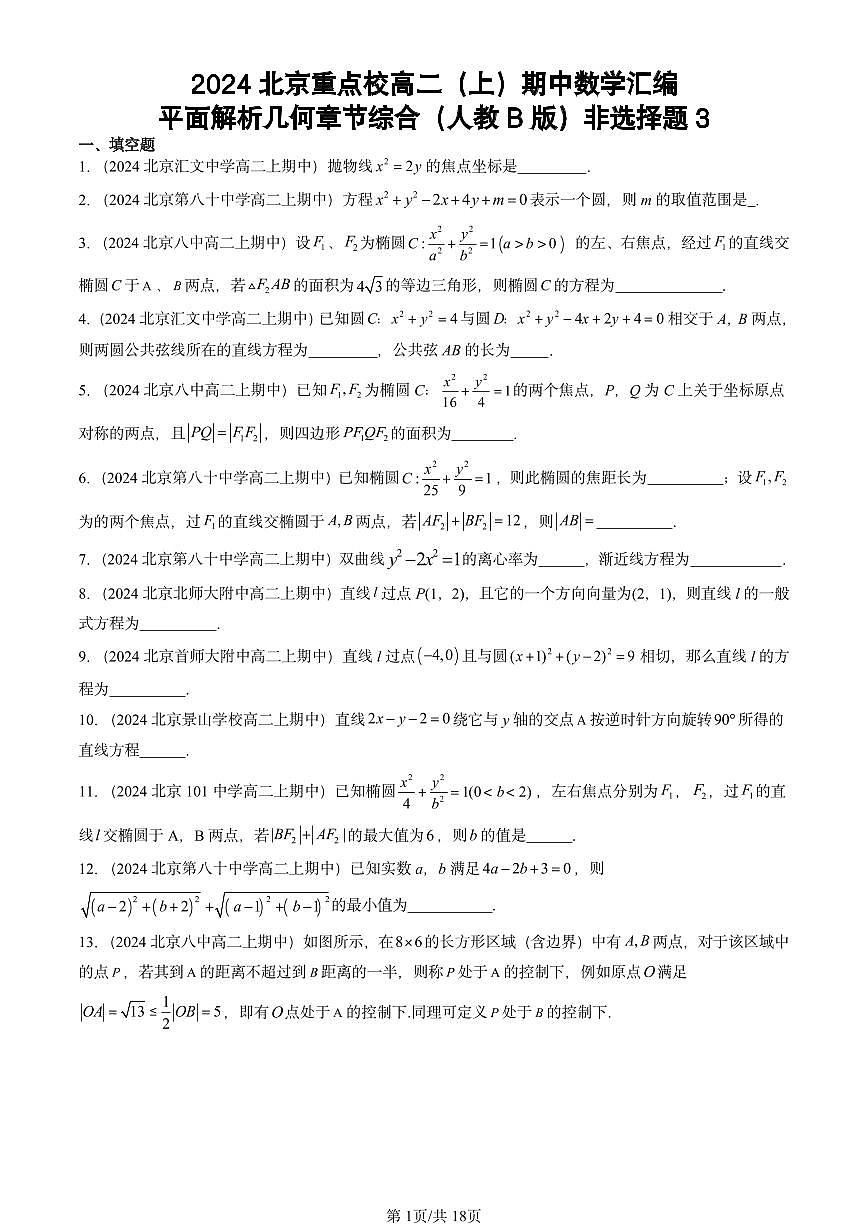 2024 北京重点校高二（上）期中数学汇编
平面解析几何章节综合（人教 B 版）非选择题 3
一、填空题
1.（2024 北京汇文中学高二上期中）抛物线 x² = 2y 的焦点坐标是________.
2.（2024 北京第八十中学高二上期中）方程 x² + y² − 2x + 4y + m = 0 表示一个圆，则 m 的取值范围是_.
3.（2024 北京八中高二上期中）设 F₁、F₂ 为椭圆 C : x²/a² + y²/b² = 1(a > b > 0) 的左、右焦点，经过 F₁ 的直线交
椭圆 C 于 A 、 B 两点，若 △F₂AB 的面积为 4√3 的等边三角形，则椭圆 C 的方程为______________.
4.（2024 北京汇文中学高二上期中）已知圆 C: x² + y² = 4 与圆 D: x² + y² − 4x + 2y + 4 = 0 相交于 A, B 两点，
则两圆公共弦线所在的直线方程为_________，公共弦 AB 的长为_____.
5.（2024 北京八中高二上期中）已知 F₁, F₂ 为椭圆 C: x²/16 + y²/4 = 1 的两个焦点，P，Q 为 C 上关于坐标原点
对称的两点，且 |PQ| = |F₁F₂|，则四边形 PF₁QF₂ 的面积为________.
6.（2024 北京第八十中学高二上期中）已知椭圆 C : x²/25 + y²/9 = 1，则此椭圆的焦距长为__________；设 F₁, F₂
为的两个焦点，过 F₁ 的直线交椭圆于 A, B 两点，若 |AF₂| + |BF₂| = 12，则 |AB| = __________.
7.（2024 北京第八十中学高二上期中）双曲线 y² − 2x² = 1 的离心率为______，渐近线方程为____________.
8.（2024 北京北师大附中高二上期中）直线 l 过点 P(1，2)，且它的一个方向向量为(2，1)，则直线 l 的一般
式方程为__________.
9.（2024 北京首师大附中高二上期中）直线 l 过点 (−4,0) 且与圆 (x+1)² + (y−2)² = 9 相切，那么直线 l 的方
程为__________.
10.（2024 北京景山学校高二上期中）直线 2x − y − 2 = 0 绕它与 y 轴的交点 A 按逆时针方向旋转 90° 所得的
直线方程______.
11.（2024 北京 101 中学高二上期中）已知椭圆 x²/4 + y²/b² = 1(0 < b < 2)，左右焦点分别为 F₁，F₂，过 F₁ 的直
线 l 交椭圆于 A，B 两点，若 |BF₂| + |AF₂| 的最大值为 6，则 b 的值是______.
12.（2024 北京第八十中学高二上期中）已知实数 a，b 满足 4a − 2b + 3 = 0，则
√((a−2)² + (b+2)²) + √((a−1)² + (b−1)²) 的最小值为___________.
13.（2024 北京八中高二上期中）如图所示，在 8×6 的长方形区域（含边界）中有 A, B 两点，对于该区域中
的点 P，若其到 A 的距离不超过到 B 距离的一半，则称 P 处于 A 的控制下，例如原点 O 满足
|OA| = √13 ≤ 1/2|OB| = 5，即有 O 点处于 A 的控制下.同理可定义 P 处于 B 的控制下.
第 1页/共 18页